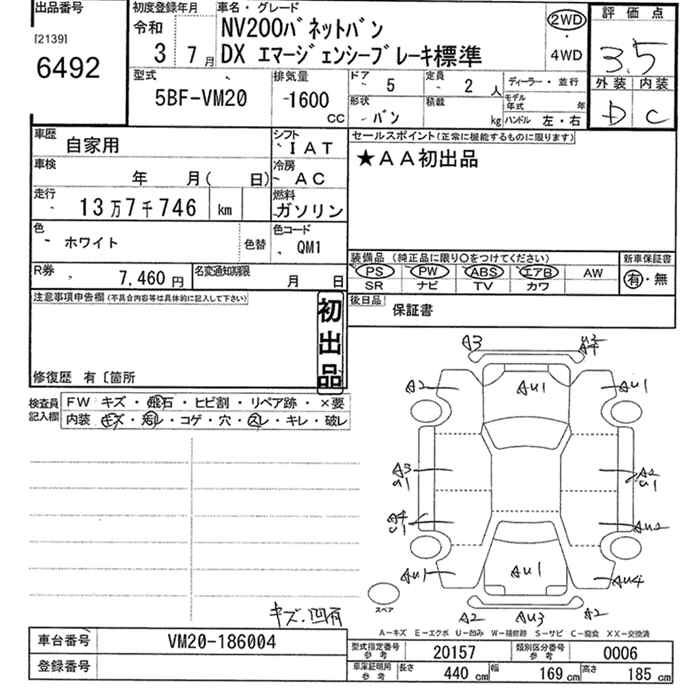 出品番号
[2139]
6492
初度登録年月
令和
3 7月
車名・グレード
NV200バネットバン
DX エマージェンシーブレーキ標準
2WD
・
4WD
評価点
3.5
外装 内装
D C
型式
5BF-VM20
排気量
1600
CC
ドア 5
定員 2 人
形状 バン
積載 kg
ディーラー・並行
モデル年式 年
ハンドル 左・右
車歴 自家用
シフト IAT
車検 年 月( 日)
冷房 AC
走行 13万7千746 km
燃料 ガソリン
色 ホワイト 色替
色コード QM1
R券 7,460円
名変通知期限 月 日
セールスポイント(正常に機能するものに限ります)
★AA初出品
装備品 (純正品に限り〇をつけてください)
新車保証書
PS PW ABS エアB AW
SR ナビ TV カワ
有・無
後日品 保証書
注意事項申告欄(不具合内容等は具体的に記入して下さい)
初出品
修復歴 有〔箇所
検査員記入欄
FW キズ・飛石・ヒビ割・リペア跡・×要
内装 キズ・汚レ・コゲ・穴・スレ・キレ・破レ
A3
A2
AU1
AU1
A3
U1
A2
U1
A4
U1
AU2
AU1
AU1
AU4
A2 AU3 A2
スペア
キズ・凹有
A-キズ E-エクボ U-凹み W-補修跡 S-サビ C-腐食 XX-交換済
車台番号 VM20-186004
登録番号
型式指定番号 参考 20157
類別区分番号 参考 0006
車庫証明用 参考 長さ 440 cm 幅 169 cm 高さ 185 cm